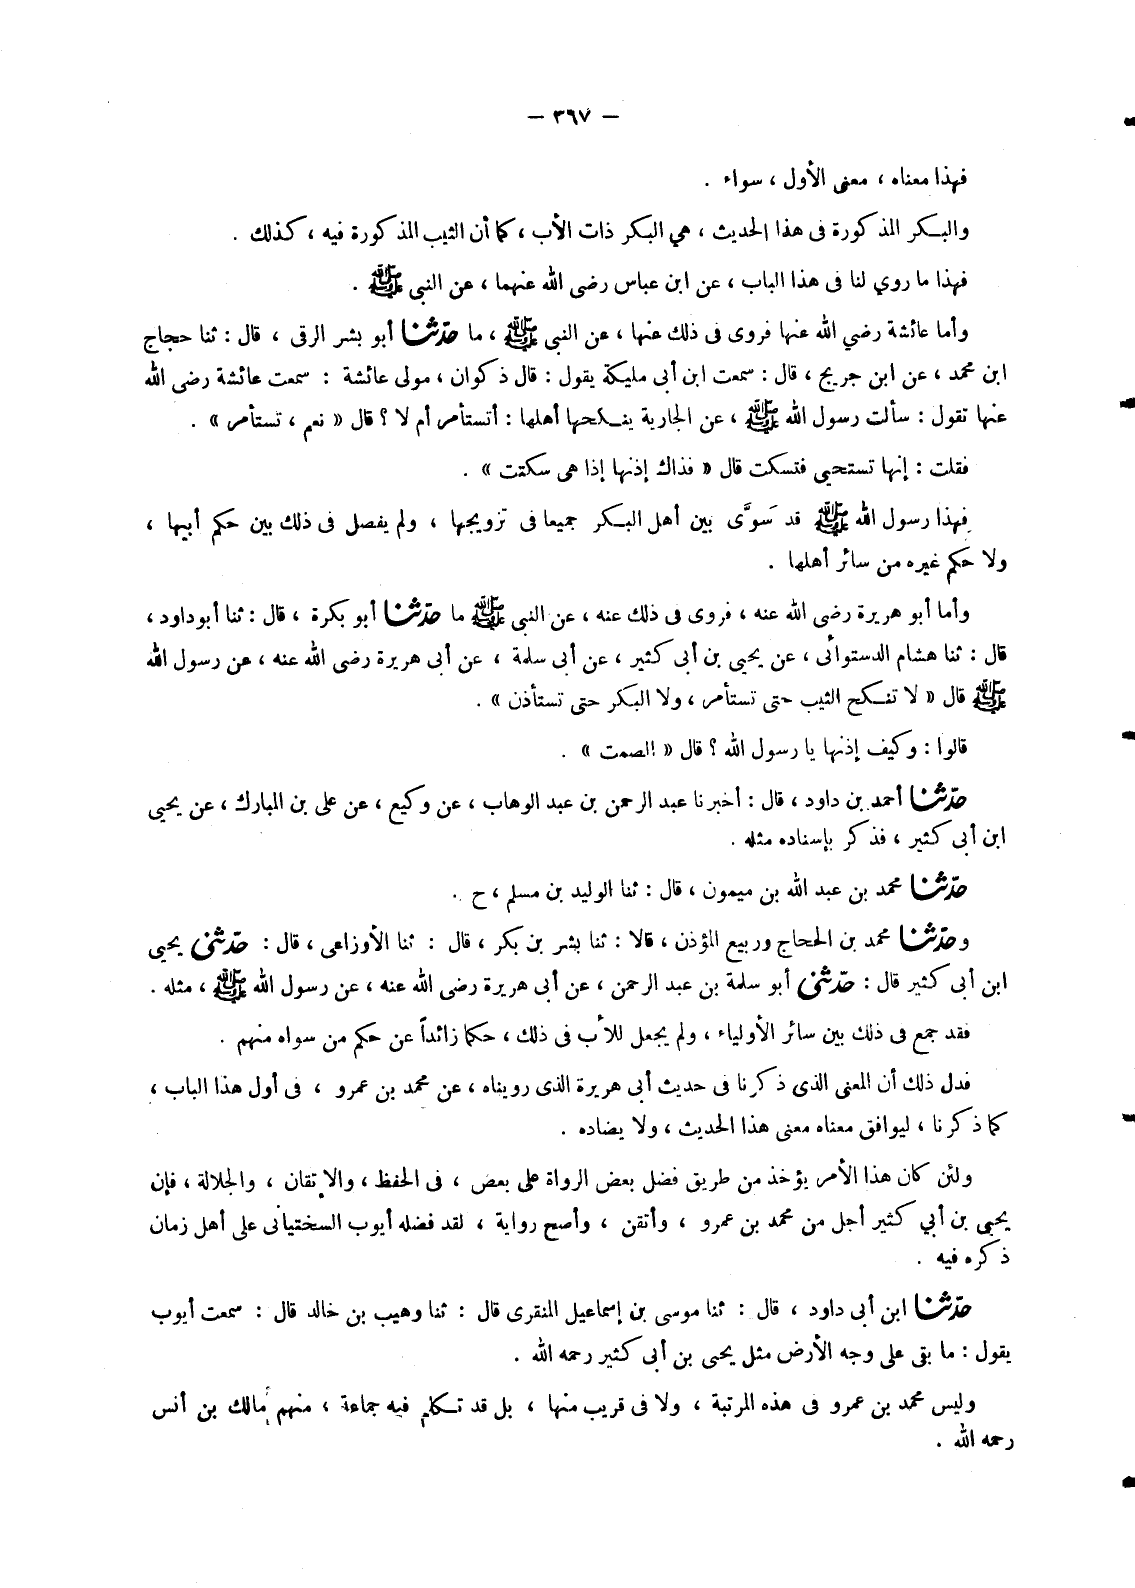 — ٣٦٧ —
فهذا معناه ، معنى الأول ، سواء .
والبكر المذكورة فى هذا الحديث ، هي البكر ذات الأب ، كما أن الثيب المذكورة فيه ، كذلك .
فهذا ما روي لنا فى هذا الباب ، عن ابن عباس رضى الله عنهما ، عن النبي ﷺ .
وأما عائشة رضي الله عنها فروى فى ذلك عنها ، عن النبى ﷺ ، ما حدّثنا أبو بشر الرقى ، قال : ثنا حجاج
ابن محمد ، عن ابن جريج ، قال : سمعت ابن أبى مليكة يقول : قال ذكوان ، مولى عائشة : سمعت عائشة رضى الله
عنها تقول : سألت رسول الله ﷺ ، عن الجارية ينكحها أهلها : أتستأمر أم لا ؟ قال « نعم ، تستأمر » .
فقلت : إنها تستحيى فتسكت قال « فذاك إذنها إذا هى سكتت » .
فهذا رسول الله ﷺ قد سَوَّى بين أهل البكر جميعا فى تزويجها ، ولم يفصل فى ذلك بين حكم أبيها ،
ولا حكم غيره من سائر أهلها .
وأما أبو هريرة رضى الله عنه ، فروى فى ذلك عنه ، عن النبى ﷺ ما حدّثنا أبو بكرة ، قال : ثنا أبو داود ،
قال : ثنا هشام الدستوائى ، عن يحيى بن أبى كثير ، عن أبى سلمة ، عن أبى هريرة رضى الله عنه ، عن رسول الله
ﷺ قال « لا تنكح الثيب حتى تستأمر ، ولا البكر حتى تستأذن » .
قالوا : وكيف إذنها يا رسول الله ؟ قال « الصمت » .
حدّثنا أحمد بن داود ، قال : أخبرنا عبد الرحمن بن عبد الوهاب ، عن وكيع ، عن على بن المبارك ، عن يحيى
ابن أبى كثير ، فذكر بإسناده مثله .
حدّثنا محمد بن عبد الله بن ميمون ، قال : ثنا الوليد بن مسلم ، ح .
وحدّثنا محمد بن الحجاج وربيع المؤذن ، قالا : ثنا بشر بن بكر ، قال : ثنا الأوزاعى ، قال : حدّثنى يحيى
ابن أبى كثير قال : حدّثنى أبو سلمة بن عبد الرحمن ، عن أبى هريرة رضى الله عنه ، عن رسول الله ﷺ ، مثله .
فقد جمع فى ذلك بين سائر الأولياء ، ولم يجعل للأب فى ذلك ، حكما زائداً عن حكم من سواه منهم .
فدل ذلك أن المعنى الذى ذكرنا فى حديث أبى هريرة الذى رويناه ، عن محمد بن عمرو ، فى أول هذا الباب ،
كما ذكرنا ، ليوافق معناه معنى هذا الحديث ، ولا يضاده .
ولئن كان هذا الأمر يؤخذ من طريق فضل بعض الرواة على بعض ، فى الحفظ ، والإتقان ، والجلالة ، فإن
يحيى بن أبي كثير أجل من محمد بن عمرو ، وأتقن ، وأصح رواية ، لقد فضله أيوب السختيانى على أهل زمان
ذكره فيه .
حدّثنا ابن أبى داود ، قال : ثنا موسى بن إسماعيل المنقرى قال : ثنا وهيب بن خالد قال : سمعت أيوب
يقول : ما بقى على وجه الأرض مثل يحيى بن أبى كثير رحمه الله .
وليس محمد بن عمرو فى هذه المرتبة ، ولا فى قريب منها ، بل قد تكلم فيه جماعة ، منهم مالك بن أنس
رحمه الله .